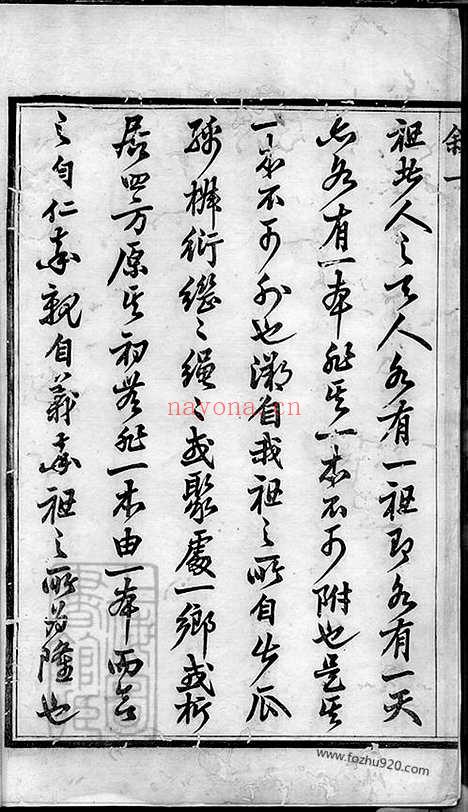 叙一
祖者人之天人各有一祖即各有一天
亦各有一本非其一本不可附也是其
一本不可外也溯自我祖之所自出瓜
綿椒衍繼〻繩〻或聚處一鄉或析
居四方原其初無非一本由一本而言
之自仁率親自義率祖之所為隆也
navona.cn
www.fozhu920.com